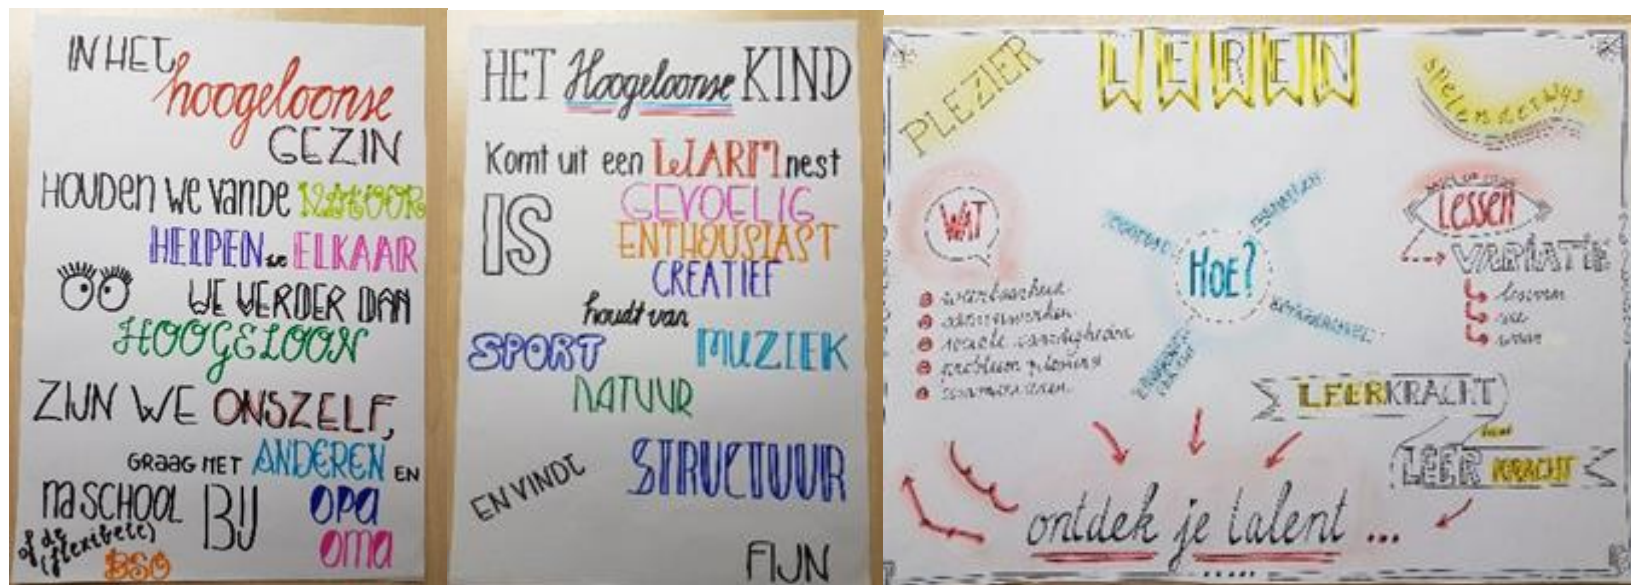 IN HET
hoogeloonse
GEZIN
HOUDEN WE VAN DE NATUUR
HELPEN we ELKAAR
WE VERDER DAN
HOOGELOON
ZIJN WE ONSZELF,
GRAAG MET ANDEREN EN
na SCHOOL BIJ OPA
OMA
of de
(flexibele)
BSO
HET Hoogeloonse KIND
Komt uit een WARM nest
IS GEVOELIG
ENTHOUSIAST
CREATIEF
houdt van
SPORT MUZIEK
NATUUR
EN VINDT STRUCTUUR
FIJN
PLEZIER
LEREN
spelenderwijs
WAT
weerbaarheid
samenwerken
sociale vaardigheden
HOE?
Lessen
VARIATIE
LEERKRACHT
LEER KRACHT
ontdek je talent ...